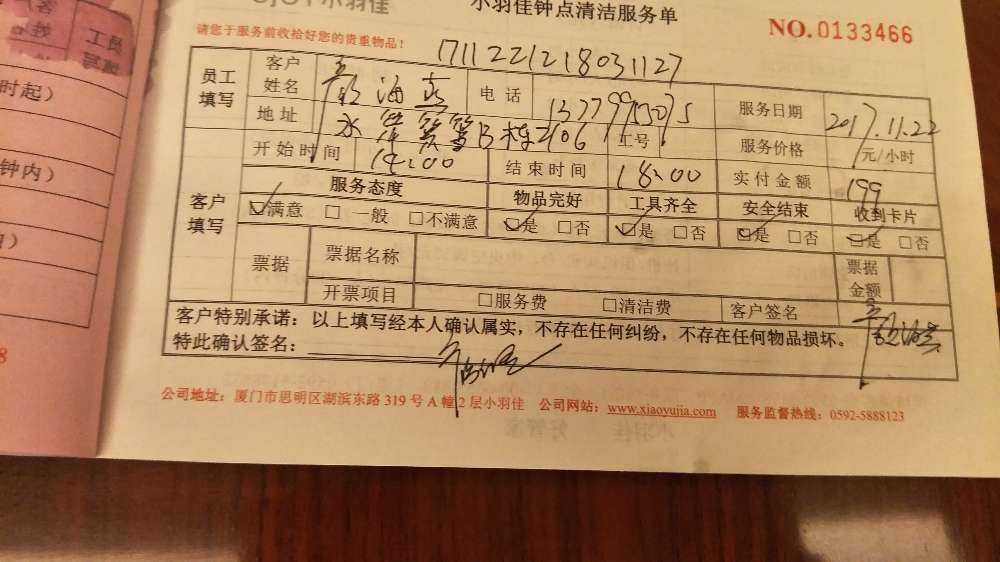 小羽佳
小羽佳钟点清洁服务单
请您于服务前收拾好您的贵重物品！
NO.0133466
1711221218031127
员工填写 客户姓名 海 电话 服务日期 2017.11.22
地址 B栋2106 工号 服务价格 元/小时
客户填写 开始时间 14:00 结束时间 18:00 实付金额 199
服务态度 物品完好 工具齐全 安全结束 收到卡片
☑满意 □一般 □不满意 ☑是 □否 ☑是 □否 ☑是 □否 ☑是 □否
票据 票据名称 票据金额
开票项目 □服务费 □清洁费 客户签名
客户特别承诺：以上填写经本人确认属实，不存在任何纠纷，不存在任何物品损坏。
特此确认签名：
公司地址：厦门市思明区湖滨东路319号A幢2层小羽佳 公司网站：www.xiaoyujia.com 服务监督热线：0592-5888123
员工填写
时起）
钟内）